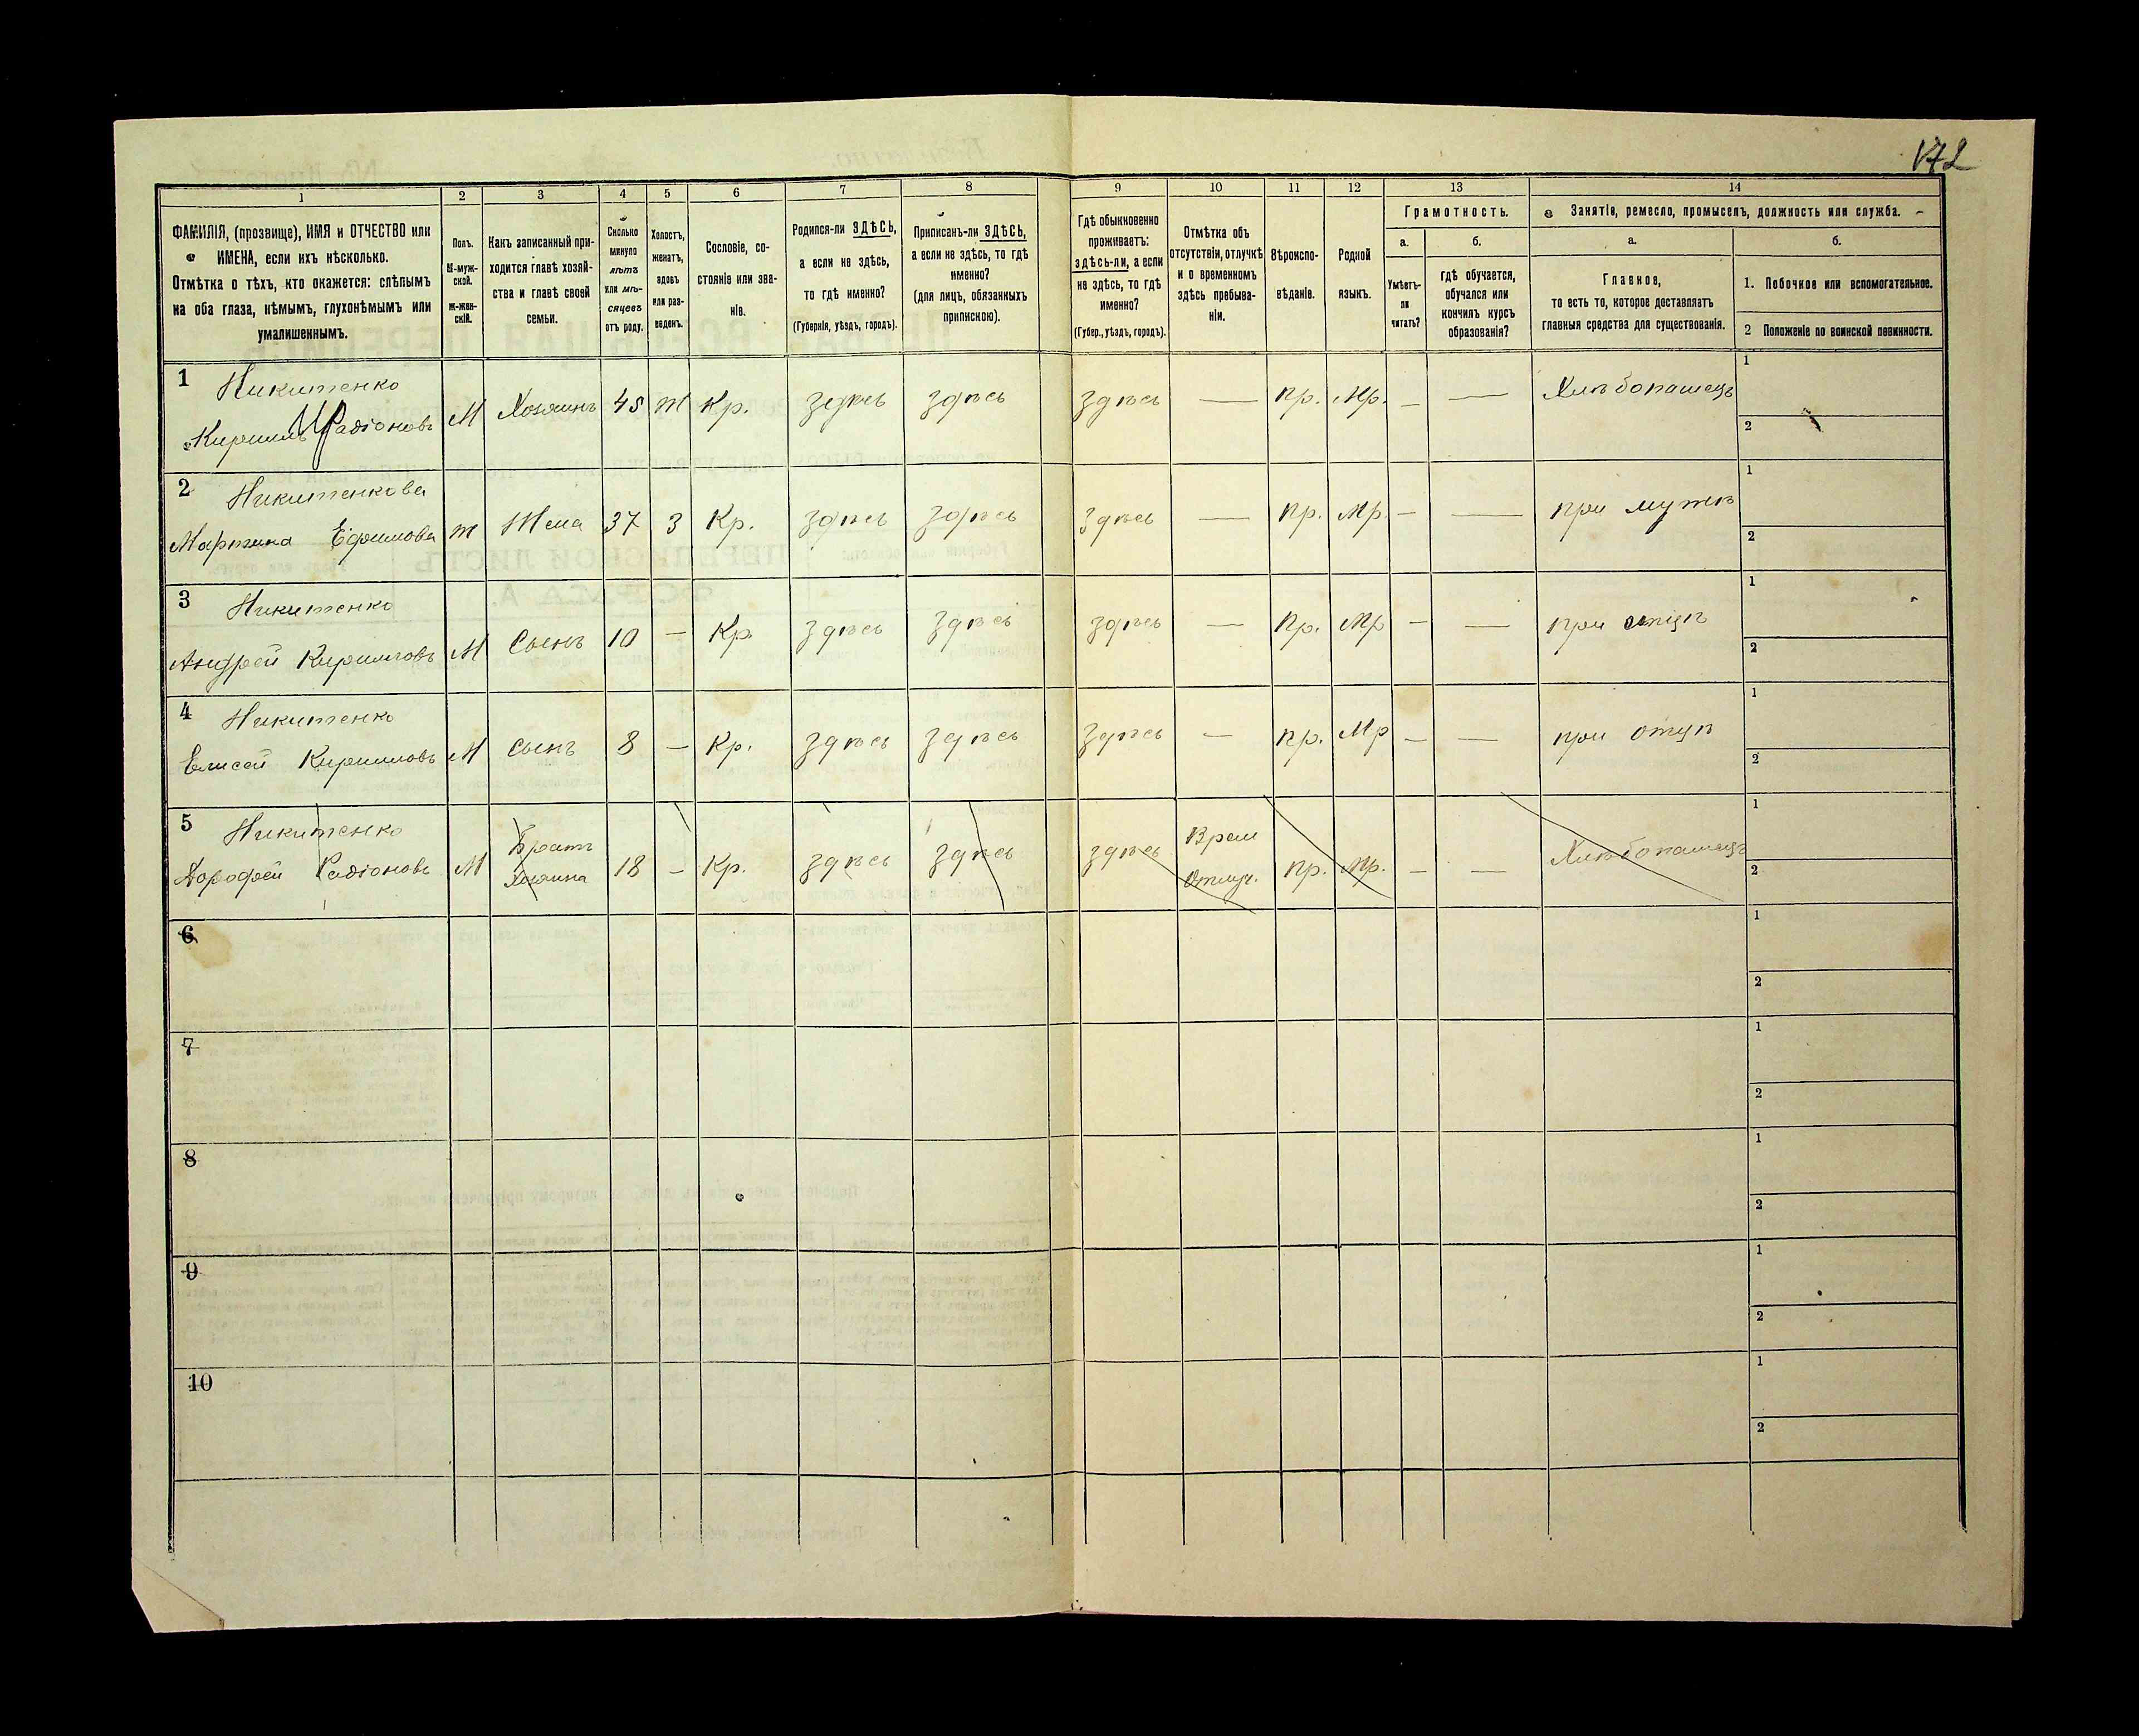 172
1
2
3
4
5
6
7
8
9
10
11
12
13
14
ФАМИЛІЯ, (прозвище), ИМЯ и ОТЧЕСТВО или
ИМЕНА, если ихъ нѣсколько.
Отмѣтка о тѣхъ, кто окажется: слѣпымъ
на оба глаза, нѣмымъ, глухонѣмымъ или
умалишеннымъ.
Полъ.
М-муж-
ской.
Ж-жен-
скій.
Какъ записанный при-
ходится главѣ хозяй-
ства и главѣ своей
семьи.
Сколько
минуло
лѣтъ
или мѣ-
сяцевъ
отъ роду.
Холостъ,
женатъ,
вдовъ
или раз-
веденъ.
Сословіе, со-
стояніе или зва-
ніе.
Родился-ли ЗДѢСЬ,
а если не здѣсь,
то гдѣ именно?
(Губернія, уѣздъ, городъ).
Приписанъ-ли ЗДѢСЬ,
а если не здѣсь, то гдѣ
именно?
(для лицъ, обязанныхъ
припискою).
Гдѣ обыкновенно
проживаетъ:
здѣсь-ли, а если
не здѣсь, то гдѣ
именно?
(Губер., уѣздъ, городъ).
Отмѣтка объ
отсутствіи, отлучкѣ
и о временномъ
здѣсь пребыва-
ніи.
Вѣроиспо-
вѣданіе.
Родной
языкъ.
Грамотность.
а.
Умѣетъ-
ли
читать?
б.
гдѣ обучается,
обучался или
кончилъ курсъ
образованія?
Занятіе, ремесло, промыселъ, должность или служба.
а.
Главное,
то есть то, которое доставляетъ
главныя средства для существованія.
б.
1. Побочное или вспомогательное.
2 Положеніе по воинской повинности.
1 Никитенко
Кирилъ Радіоновъ М Хозяинъ 45 ж Кр. здѣсь здѣсь здѣсь — пр. Мр. — — Хлѣбопашецъ
1
2
2 Никитенкова
Ефимова ж Жена 37 З Кр. здѣсь здѣсь здѣсь — пр. Мр. — — при мужѣ
1
2
3 Никитенко
Андрей Кириловъ М Сынъ 10 — Кр. здѣсь здѣсь здѣсь — пр. Мр — — при отцѣ
1
2
4 Никитенко
Елисей Кириловъ М Сынъ 8 — Кр. здѣсь здѣсь здѣсь — пр. Мр — — при отцѣ
1
2
5 Никитенко
Дорофей Радіоновъ М Братъ
хозяина 18 — Кр. здѣсь здѣсь здѣсь Врем
Отлуч. пр. Мр. — — Хлѣбопашецъ
1
2
6
1
2
7
1
2
8
1
2
9
1
2
10
1
2